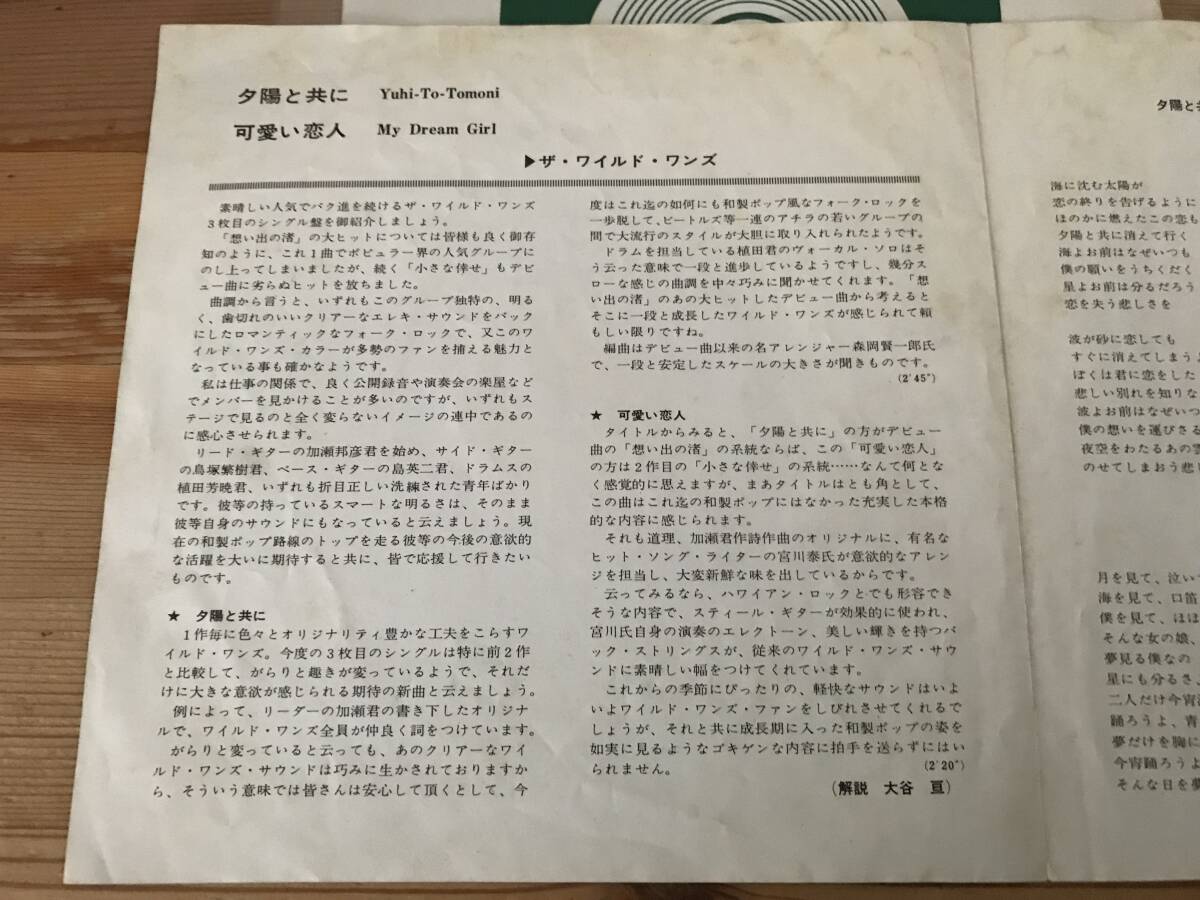 夕陽と共に Yuhi-To-Tomoni
可愛い恋人 My Dream Girl
▶ザ・ワイルド・ワンズ
素晴しい人気でバク進を続けるザ・ワイルド・ワンズ
3枚目のシングル盤を御紹介しましょう。
「想い出の渚」の大ヒットについては皆様も良く御存
知のように、これ1曲でポピュラー界の人気グループに
のし上ってしまいましたが、続く「小さな倖せ」もデビ
ュー曲に劣らぬヒットを放ちました。
曲調から言うと、いずれもこのグループ独特の、明る
く、歯切れのいいクリアーなエレキ・サウンドをバック
にしたロマンティックなフォーク・ロックで、又このワ
イルド・ワンズ・カラーが多勢のファンを捕える魅力と
なっている事も確かなようです。
私は仕事の関係で、良く公開録音や演奏会の楽屋など
でメンバーを見かけることが多いのですが、いずれもス
テージで見るのと全く変らないイメージの連中であるの
に感心させられます。
リード・ギターの加瀬邦彦君を始め、サイド・ギター
の鳥塚繁樹君、ベース・ギターの島英二君、ドラムスの
植田芳暁君、いずれも折目正しい洗練された青年ばかり
です。彼等の持っているスマートな明るさは、そのまま
彼等自身のサウンドにもなっていると云えましょう。現
在の和製ポップ路線のトップを走る彼等の今後の意欲的
な活躍を大いに期待すると共に、皆で応援して行きたい
ものです。
★ 夕陽と共に
1作毎に色々とオリジナリティ豊かな工夫をこらすワ
イルド・ワンズ。今度の3枚目のシングルは特に前2作
と比較して、がらりと趣きが変っているようで、それだ
けに大きな意欲が感じられる期待の新曲と云えましょう。
例によって、リーダーの加瀬君の書き下したオリジナ
ルで、ワイルド・ワンズ全員が仲良く詞をつけています。
がらりと変っていると云っても、あのクリアーなワイ
ルド・ワンズ・サウンドは巧みに生かされておりますか
ら、そういう意味では皆さんは安心して頂くとして、今
度はこれ迄の如何にも和製ポップ風なフォーク・ロックを
一歩脱して、ビートルズ等一連のアチラの若いグループの
間で大流行のスタイルが大胆に取り入れられたようです。
ドラムを担当している植田君のヴォーカル・ソロはそ
う云った意味で一段と進歩しているようですし、幾分ス
ローな感じの曲調を中々巧みに聞かせてくれます。「想
い出の渚」のあの大ヒットしたデビュー曲から考えると
そこに一段と成長したワイルド・ワンズが感じられて頼
もしい限りですね。
編曲はデビュー曲以来の名アレンジャー森岡賢一郎氏
で、一段と安定したスケールの大きさが聞きものです。
(2'45")
★ 可愛い恋人
タイトルからみると、「夕陽と共に」の方がデビュー
曲の「想い出の渚」の系統ならば、この「可愛い恋人」
の方は2作目の「小さな倖せ」の系統……なんて何とな
く感覚的に思えますが、まあタイトルはとも角として、
この曲はこれ迄の和製ポップにはなかった充実した本格
的な内容に感じられます。
それも道理、加瀬君作詩作曲のオリジナルに、有名な
ヒット・ソング・ライターの宮川泰氏が意欲的なアレン
ジを担当し、大変新鮮な味を出しているからです。
云ってみるなら、ハワイアン・ロックとでも形容でき
そうな内容で、スティール・ギターが効果的に使われ、
宮川氏自身の演奏のエレクトーン、美しい輝きを持つバ
ック・ストリングスが、従来のワイルド・ワンズ・サウ
ンドに素晴しい幅をつけてくれています。
これからの季節にぴったりの、軽快なサウンドはいよ
いよワイルド・ワンズ・ファンをしびれさせてくれるで
しょうが、それと共に成長期に入った和製ポップの姿を
如実に見るようなゴキゲンな内容に拍手を送らずにはい
られません。
(2'20")
(解説 大谷 亘)
夕陽と
海に沈む太陽が
恋の終りを告げるように
ほのかに燃えたこの恋も
夕陽と共に消えて行く
海よお前はなぜいつも
僕の願いをうちくだく
星よお前は分るだろう
恋を失う悲しさを
波が砂に恋しても
すぐに消えてしまう
ぼくは君に恋をした
悲しい別れを知りな
波よお前はなぜいつ
僕の想いを運びさる
夜空をわたるあの
のせてしまおう悲
月を見て、泣い
海を見て、口笛
僕を見て、ほほ
そんな女の娘、
夢見る僕なの
星にも分るさ、
二人だけ今宵
踊ろうよ、青
夢だけを胸に
今宵踊ろうよ
そんな日を夢